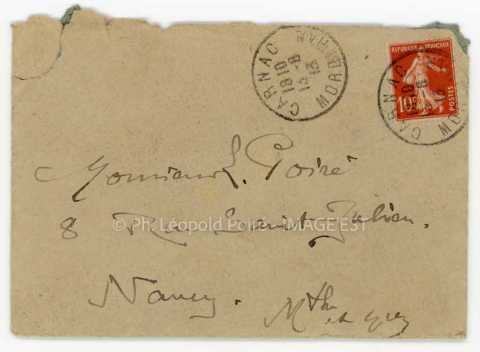 CARNAC
MORBIHAN
1810
15-8
13
REPUBLIQUE FRANCAISE
10c
POSTES
CARNAC
Monsieur L. Poiré
8 Rue Saint Julien.
© Ph. Léopold Poiré / IMAGE'EST
Nancy. Mthe
et Mlle